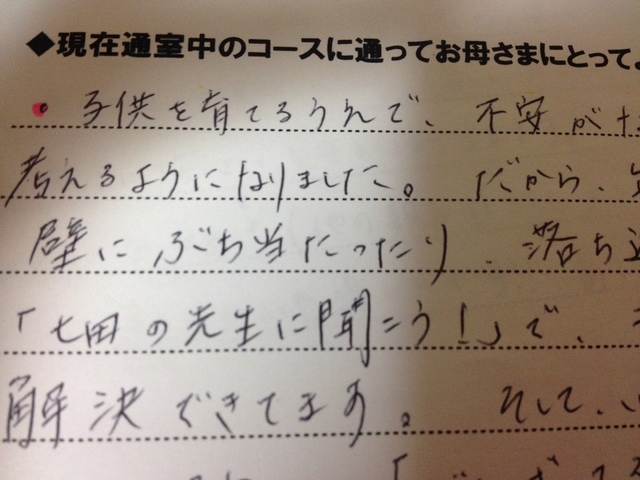 ◆現在通室中のコースに通ってお母さまにとって
子供を育てるうえで、不安が
考えるようになりました。だから、
壁にぶち当たったり、落ち
「七田の先生に聞こう!」で、
解決できてます。そして、